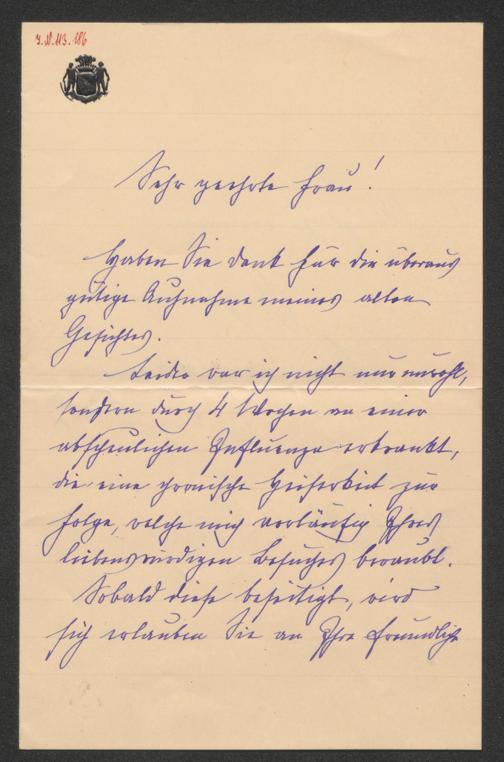 I.N. 113.186
Sehr geehrte Frau!
Haben Sie Dank für die überaus
gütige Aufnahme meines alten
Gesichtes.
Leider war ich nicht nur unwohl,
sondern durch 4 Wochen an einer
abscheulichen Influenza erkrankt,
die eine chronische Heiserkeit zur
Folge, welche mich vorläufig Ihres
liebenswürdigen Besuches beraubt.
Sobald diese beseitigt, wird
sich erlauben Sie an Ihre freundliche